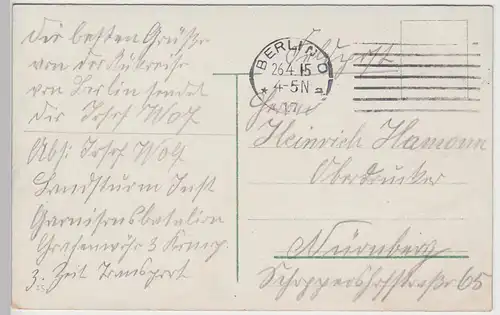 Die besten Grüße
von der Rückreise
von Berlin sendet
dir Josef Wolf
Abs: Josef Wolf
Landsturm Inft
Garnisonsbatalion
Grafenwöhr 3 Komp.
z. Zeit Transport
BERLIN O
26.4.15
4-5N
Feldpost
Herrn
Heinrich Hamann
Oberdrucker
Nürnberg
Schoppershofstraße 65